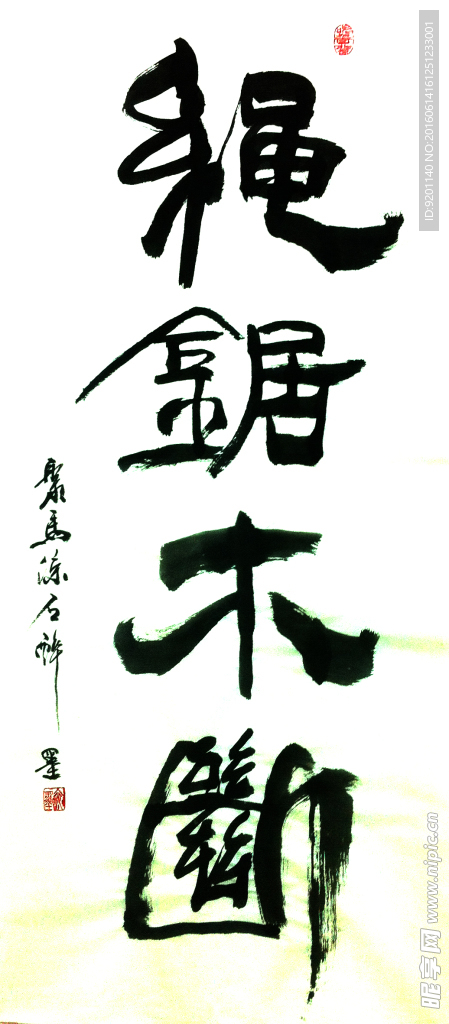 繩鋸木斷
墨
ID:9201140 NO:20160614161251233001
昵享网 www.nipic.cn